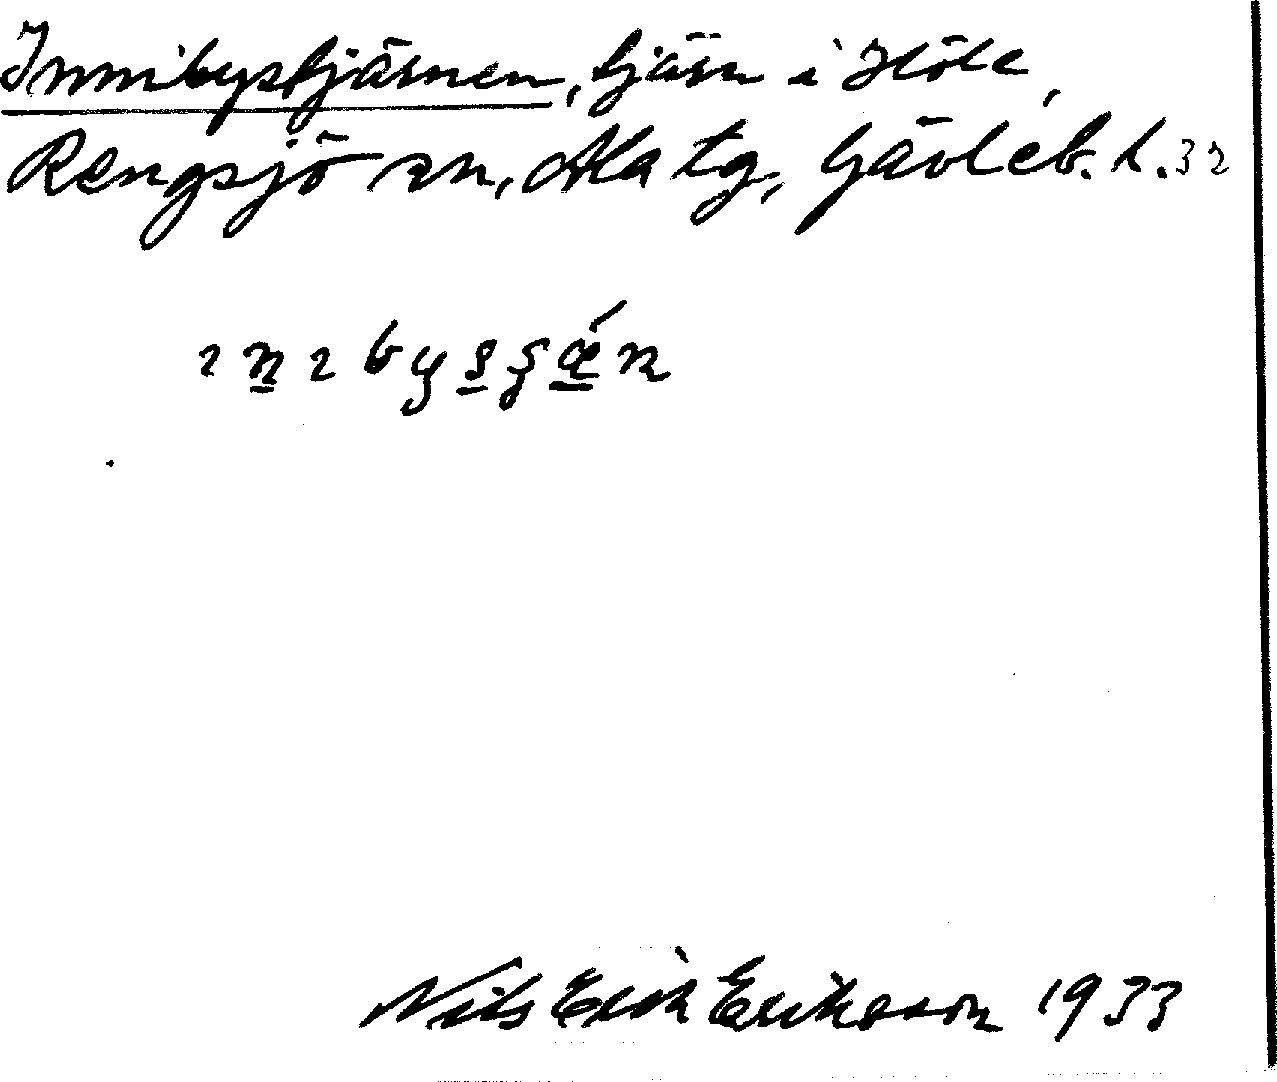 Innibystjärnen, tjärn i Höle,
Rengsjö sn, Ala tg, Gävleb. l. 32
Nils Erik Eriksson 1933